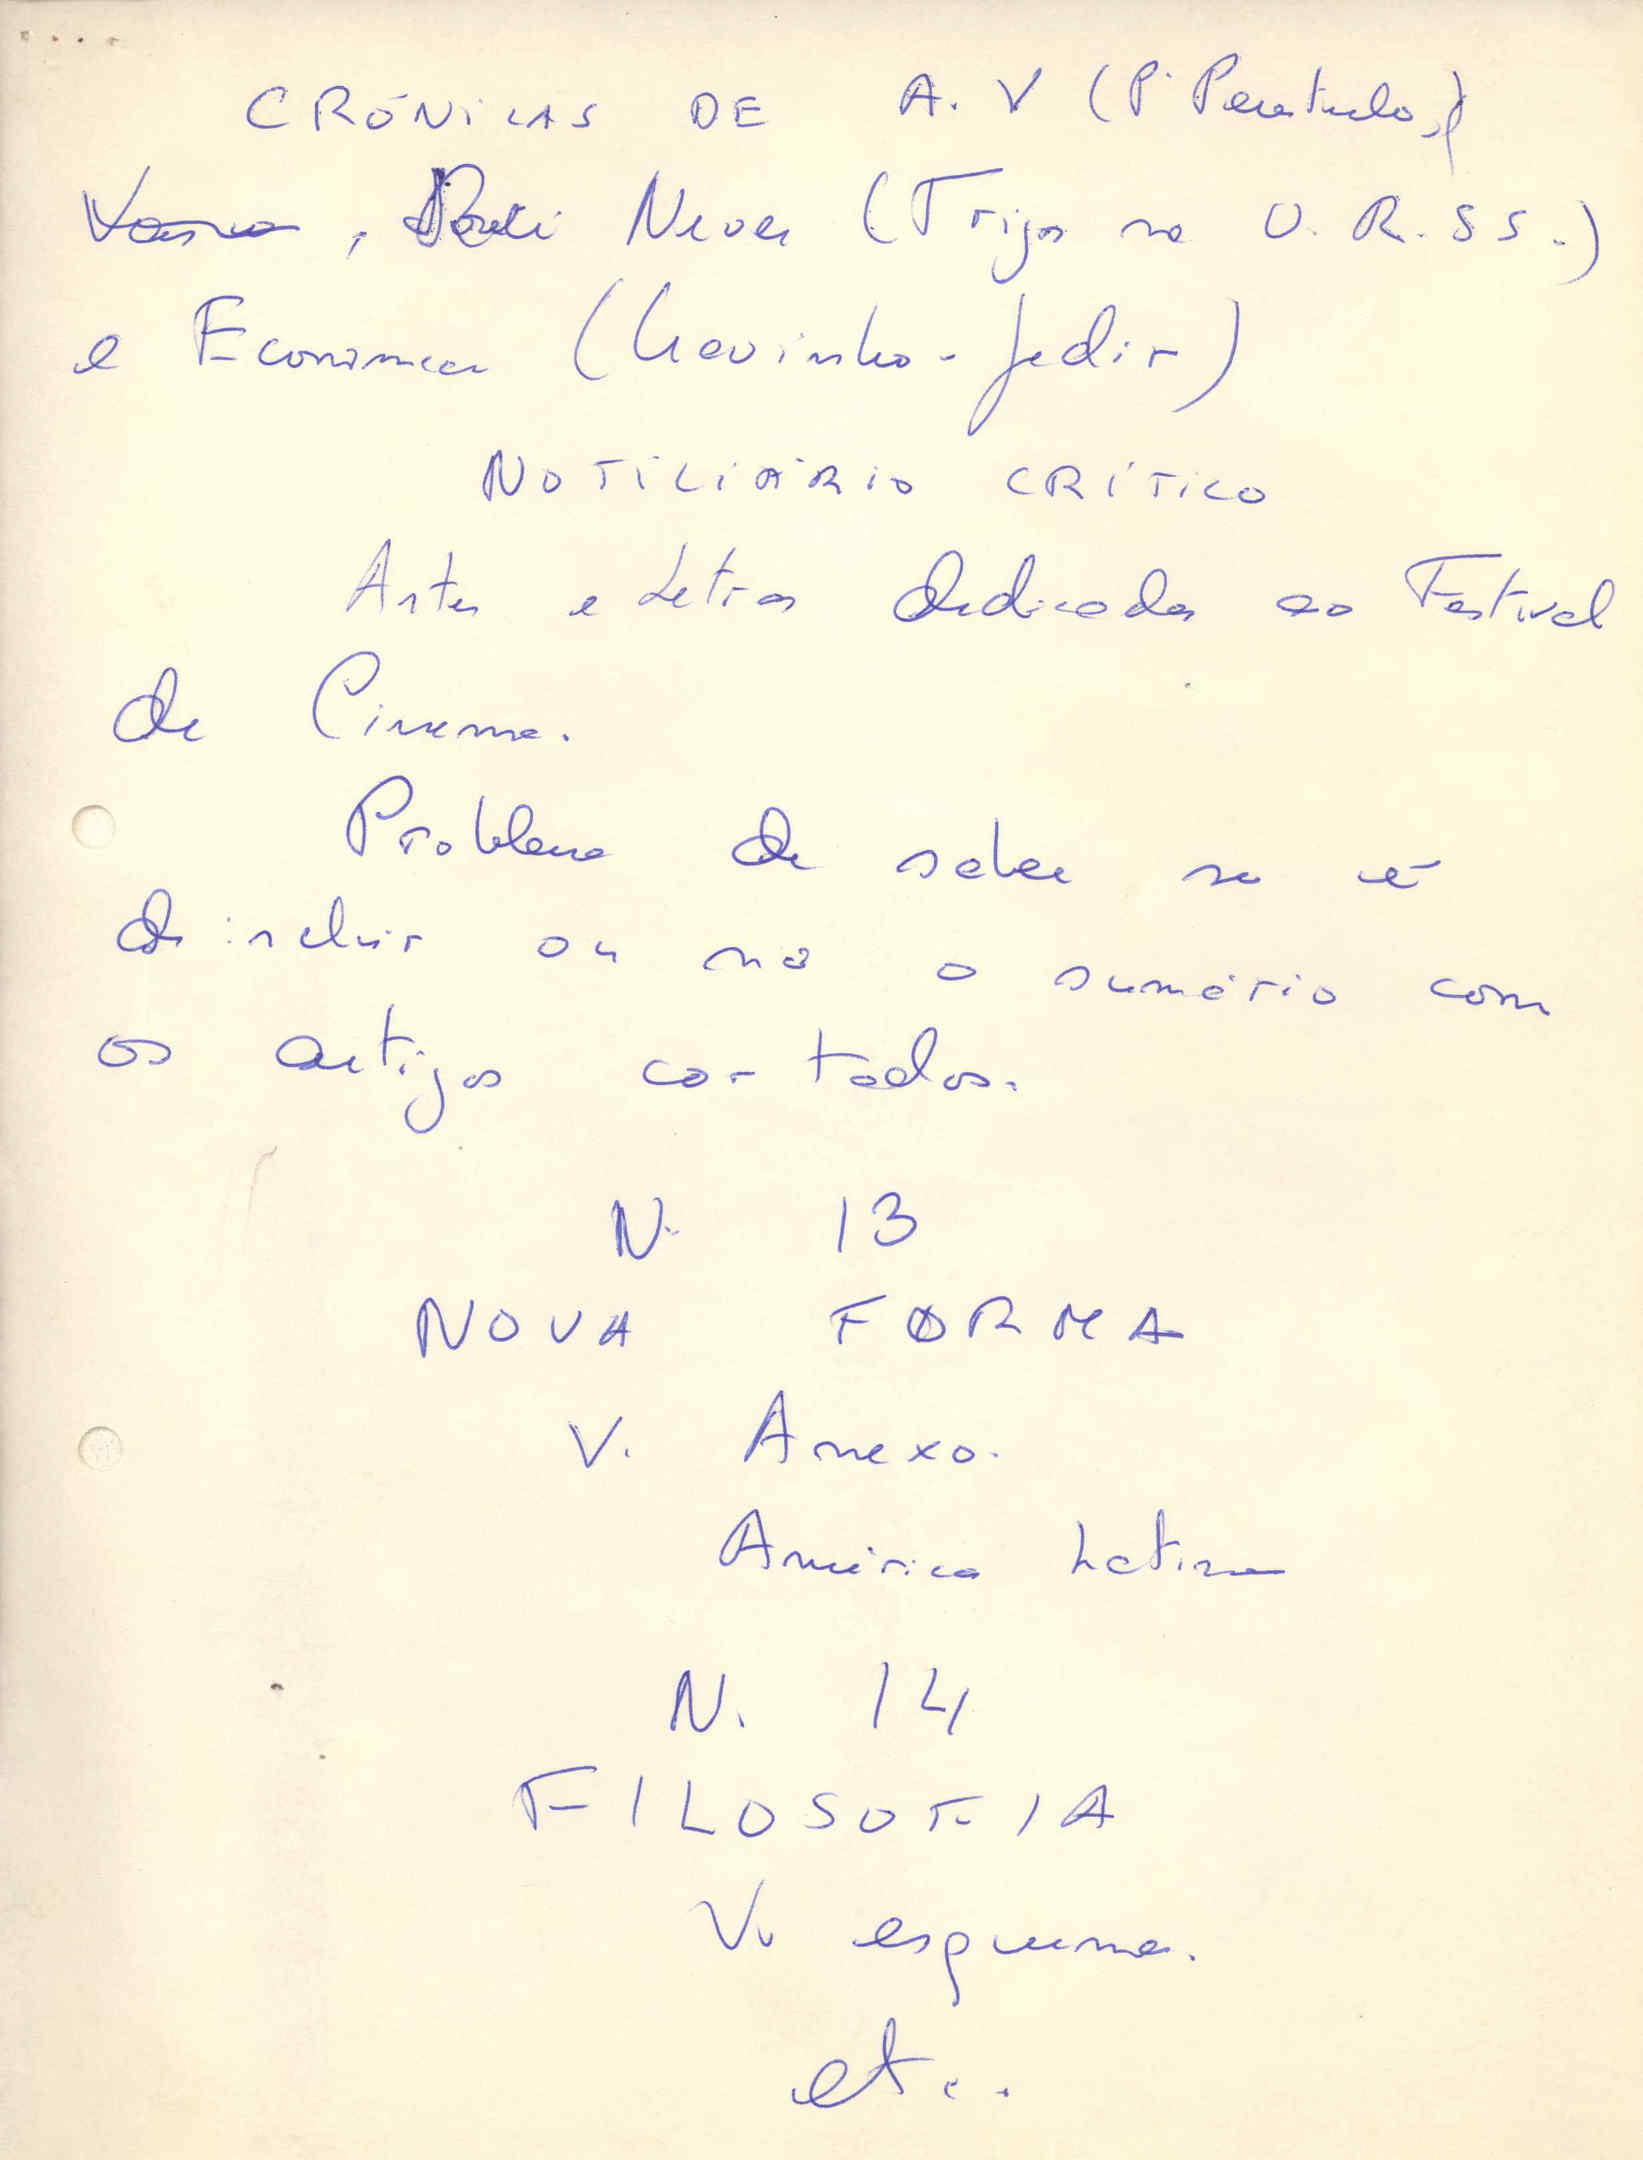 CRÓNICAS DE A. V (P.
Neves (Trigo na U. R. S S.)
e Economica (Cravinho - pedir)
NOTICIÁRIO CRÍTICO
Artes e Letras dedicadas ao Festival
de Cinema.
Problema de saber se é
de incluir ou não o sumário com
os artigos cortados.
N. 13
NOVA FORMA
V. Anexo.
América Latina
N. 14
FILOSOFIA
V. esquema.
etc.